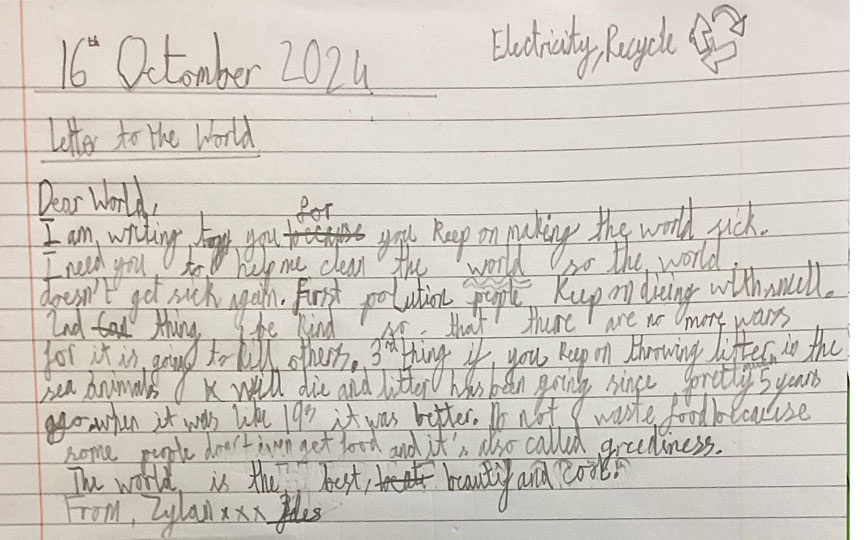 16th Octomber 2024
Electricity, Recycle
Letter to the World
Dear World,
I am writing to you for you keep on making the world sick.
I need you to help me clean the world so the world
doesn't get sick again. First polution people keep on dieing with smell.
2nd thing be kind so that there are no more wars
for it is going to kill others. 3rd thing if you keep on throwing litter in the
sea animals will die and litter has been going since pretty 5 years
ago when it was like it was better. Do not waste food because
some people don't even get food and it's also called greediness.
The world is the best, beautify and cool.
From, Zylan xxx